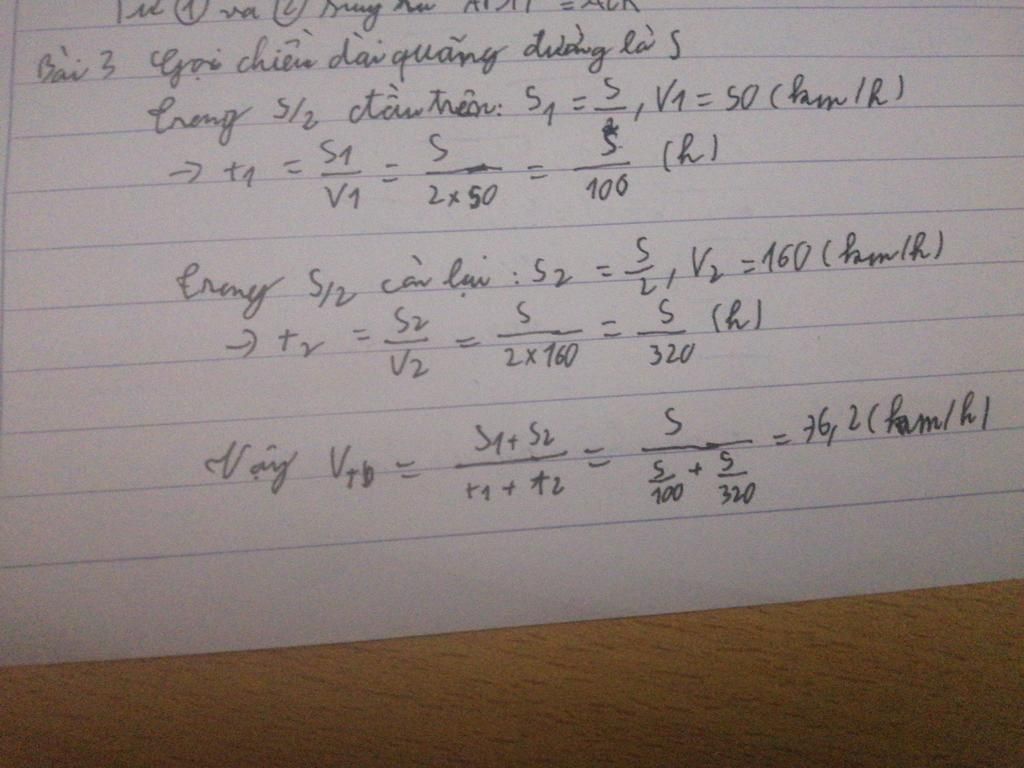 Từ ① và ② suy ra
Bài 3 Gọi chiều dài quãng đường là S
trong S/2 đầu tiên: S1 = S/2, V1 = 50 (km/h)
→ t1 = S1/V1 = S/(2×50) = S/100 (h)
trong S/2 còn lại: S2 = S/2, V2 = 160 (km/h)
→ t2 = S2/V2 = S/(2×160) = S/320 (h)
Vậy Vtb = (S1+S2)/(t1+t2) = S/(S/100 + S/320) = 76,2 (km/h)